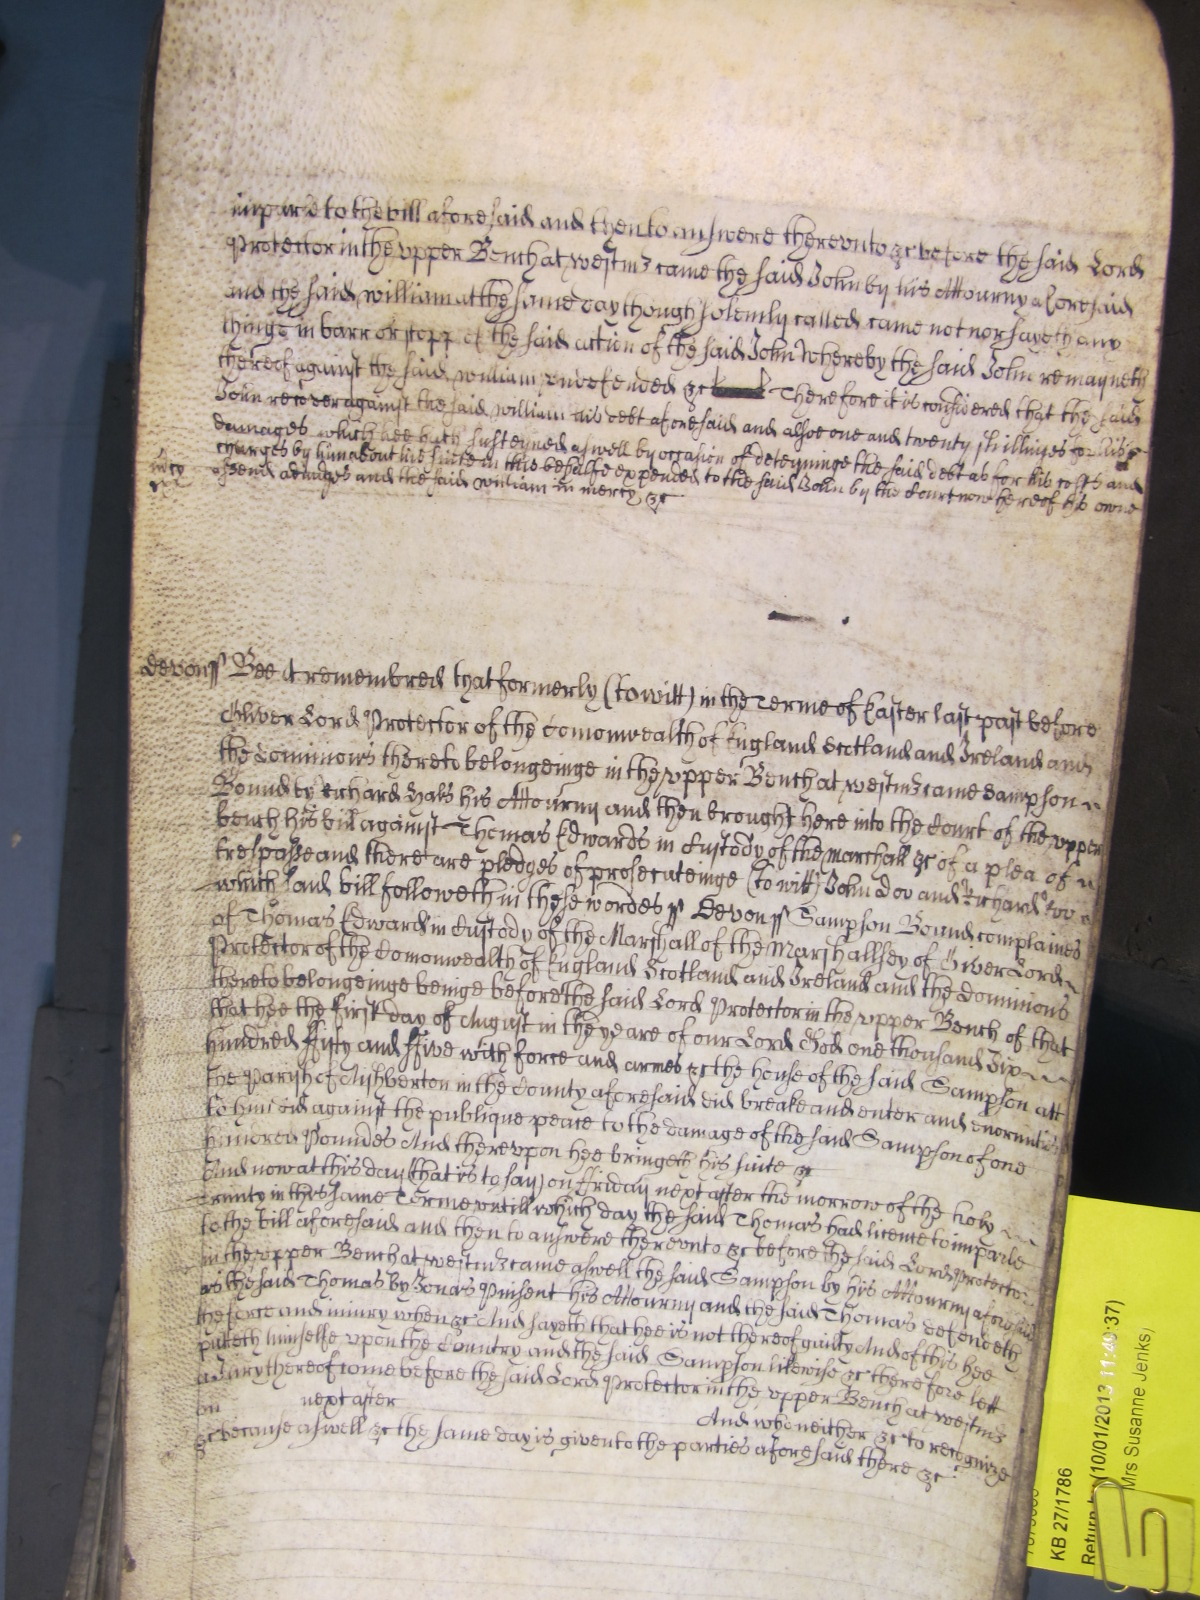 imparle to the bill aforesaid and then to answere therevnto &c before the said Lord
Protector in the vpper Bench at westm3 came the said John by his Attourny aforesaid
and the said william at the same day though solemly called came not nor sayeth any
thinge in barr or stopp of the said action of the said John whereby the said John remayneth
thereof against the said william vndefended &c Therefore it is considered that the said
John recover against the said william his debt aforesaid and alsoe one and twenty shillinges for his
damages which hee hath susteyned aswell by occasion of deteyninge the said debt as for his costs and
charges by him about his suite in this behalfe expended to the said John by the Court now here of his owne
assent adiudged and the said william in mercy &c
mercy
devon ss Bee it remembred that formerly (to witt) in the Terme of Easter last past before
Oliver Lord Protector of the Comonwealth of England Scotland and Ireland and
the dominions thereto belongeinge in the vpper Bench at westm3 came Sampson
Bound by Richard Hals his Attourny and then brought here into the Court of the vpper
bench his bill against Thomas Edwards in Custody of the marshall &c of a plea of
trespasse and there are pledges of prosecuteinge (to witt) John Doo and Richard Roo
which said bill followeth in these wordes ss Devon ss Sampson Bound complaines
of Thomas Edwards in Custody of the Marshall of the Marshallsey of Oliver Lord
Protector of the Comonwealth of England Scotland and Ireland and the dominions
thereto belongeinge beinge before the said Lord Protector in the vpper Bench of that
that hee the first day of August in the yeare of our Lord God one thousand Six
hundred fifty and ffive with force and armes &c the house of the said Sampson att
the Parish of Aishberton in the County aforesaid did breake and enter and enormities
to him did against the publique peace to the damage of the said Sampson of one
hundred Poundes And there vpon hee bringeth his suite &c
And now at this day (that is to say) on ffriday next after the morrow of the holy
Trinity in this same Terme vntill which day the said Thomas had licence to imparle
to the bill aforesaid and then to answere therevnto &c before the said Lord Protector
in the vpper Bench at westm3 came aswell the said Sampson by his Attourny aforesaid
as the said Thomas by Jonas Pinsent his Attourny and the said Thomas defendeth
the force and iniury when &c And sayeth that hee is not thereof guilty And of this hee
putteth himselfe vpon the Country and the said Sampson likewise &c therefore lett
a Jury thereof come before the said Lord Protector in the vpper Bench at westm3
on next after And who neither &c to recognize
&c because aswell &c the same day is given to the parties aforesaid there &c
KB 27/1786
Return by (10/01/2013 11:49:37)
Mrs Susanne Jenks